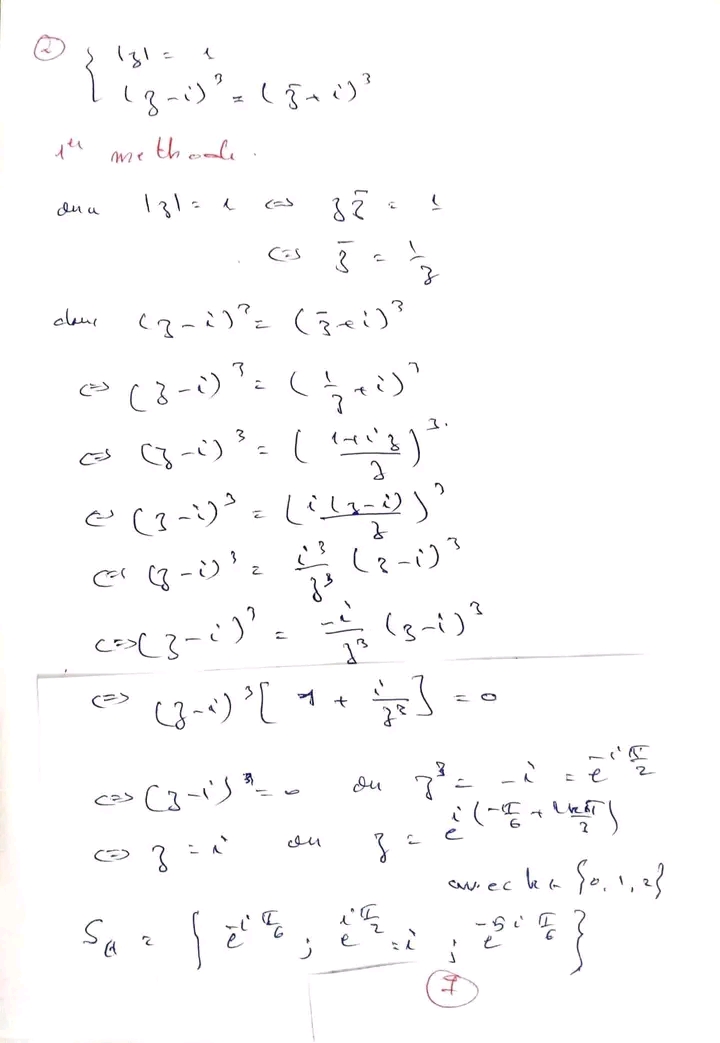 ② { |z| = 1
(z-i)³ = (z̄+i)³
1ère methode.
on a |z| = 1 <=> z z̄ = 1
<=> z̄ = 1/z
donc (z-i)³ = (z̄+i)³
<=> (z-i)³ = (1/z + i)³
<=> (z-i)³ = ((1+iz)/z)³.
<=> (z-i)³ = (i(z-i)/z)³
<=> (z-i)³ = i³/z³ (z-i)³
<=> (z-i)³ = -i/z³ (z-i)³
<=> (z-i)³ [1 + i/z³] = 0
<=> (z-i)³ = 0 ou z³ = -i = e^(-iπ/2)
<=> z = i ou z = e^(i(-π/6 + 2kπ/3))
avec k ∈ {0, 1, 2}
S_ℂ = { e^(-iπ/6) ; e^(iπ/2) = i ; e^(-5iπ/6) }
⑦